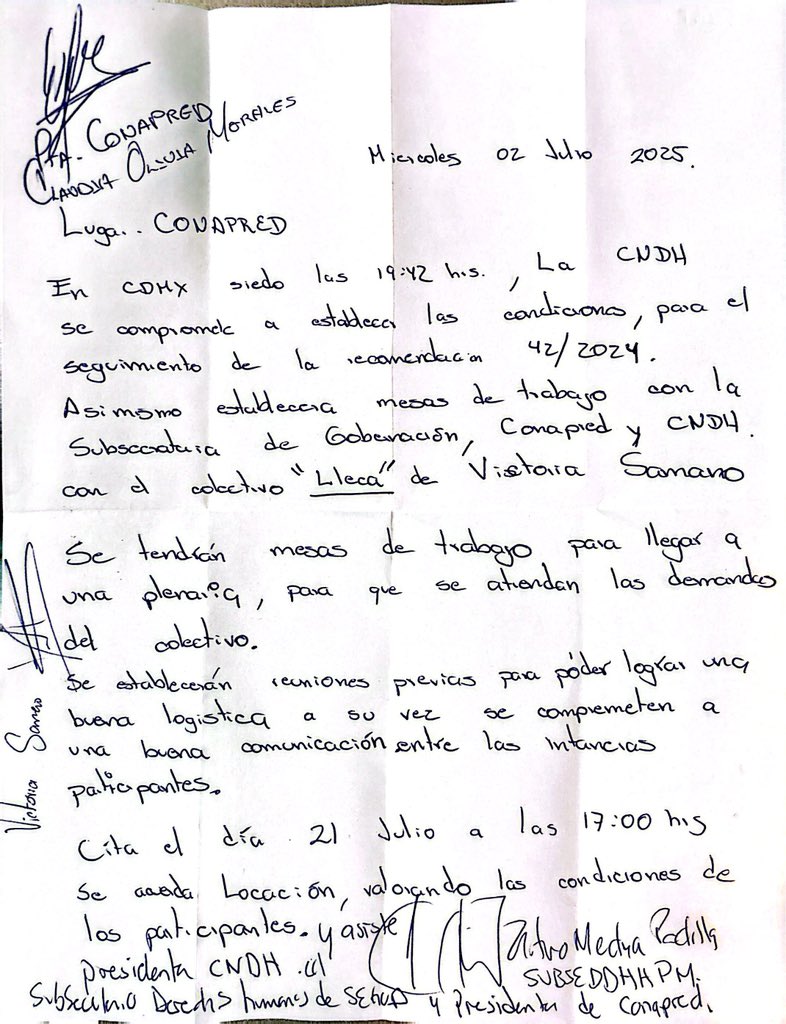 Pta. CONAPRED
CLAUDIA OLIVIA MORALES
Miercoles 02 Julio 2025.
Luga.. CONAPRED
En CDMX siedo las 19:42 hrs., La CNDH
se compromete a establecer las condiciones, para el
seguimiento de la recomendacion 42/2024.
Asimismo establecera mesas de trabajo con la
Subsecretaria de Gobernación, Conapred y CNDH.
con el colectivo "Lleca" de Victoria Samano
Se tendrán mesas de trabajo para llegar a
una plenaria, para que se atiendan las demandas
del colectivo.
Se establecerán reuniones previas para póder lograr una
buena logistica a su vez se compremeten a
una buena comunicación entre las intancias
paticipantes.
Victoria Samano
Cita el día 21 Julio a las 17:00 hrs
se acuerda Locación, valorando las condiciones de
los participantes. y asiste
presidenta CNDH, el
Arturo Medina Padilla
SUBSEDDHHPM.
Subsecretario Derechos humanos de SEGOB y Presidenta de Conapred.